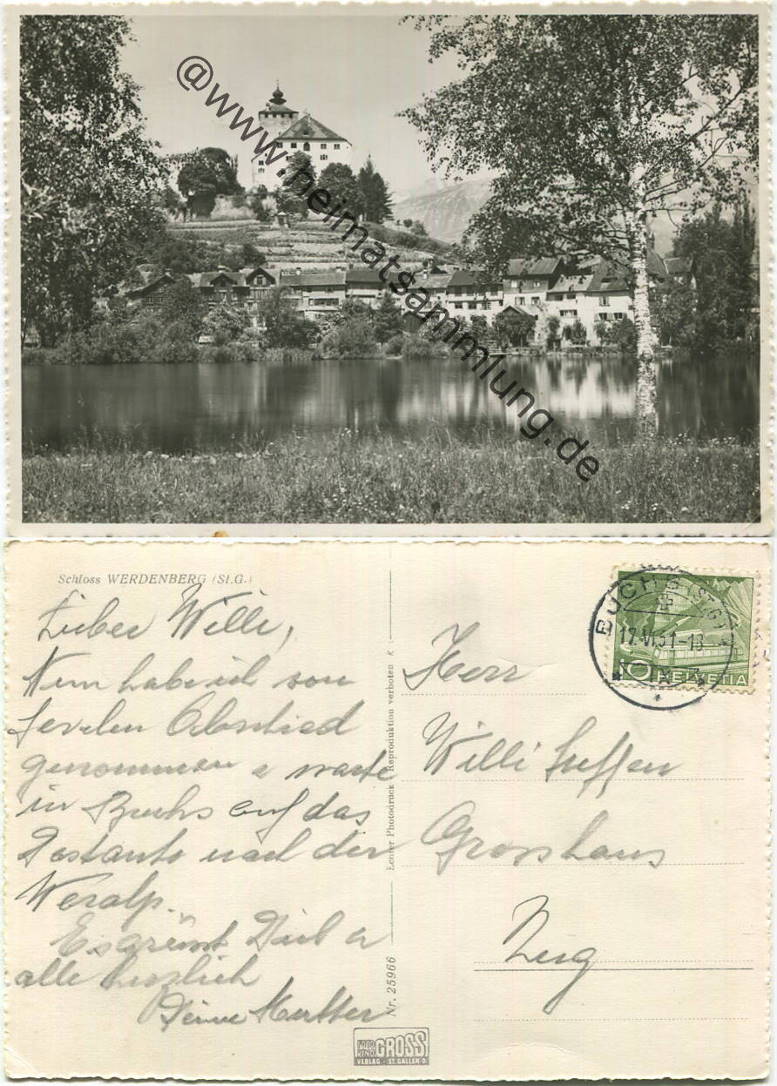 @www.heimatsammlung.de
Schloss WERDENBERG (St.G.)
Lieber Willi,
Nun habe ich von
Sevelen Abschied
genommen u warte
in Buchs auf das
Postauto nach der
Weralp.
Es grüsst Dich u
alle herzlich
Deine Mutter
Nr. 25966
Leuner Photodruck Reproduktion verboten K
GROSS
VERLAG - ST. GALLEN O.
BUCHS (ST.G)
HELVETIA
10
Herr
Willi
Grosshaus
Zug